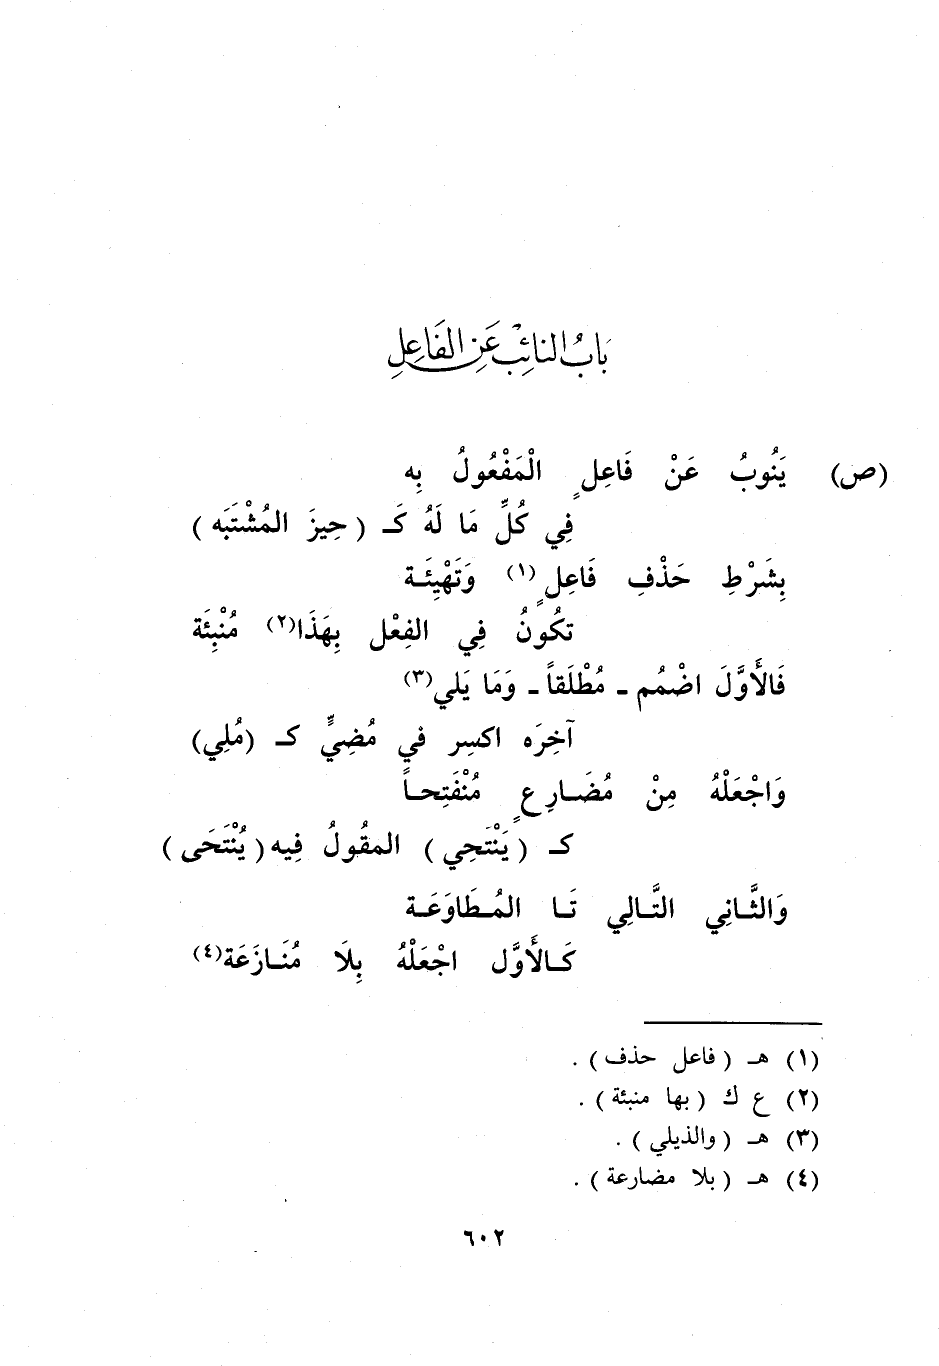 بَابُ النائِبِ عَنِ الفَاعِلِ
(ص) يَنُوبُ عَنْ فَاعِلٍ الْمَفْعُولُ بِه
فِي كُلِّ مَا لَهُ كَـ (حِيزَ المُشْتَبَه)
بِشَرْطِ حَذْفِ فَاعِلٍ(١) وَتَهْيِئَـة
تكُونُ فِي الفِعْل بِهَذَا(٢) مُنْبِئَة
فَالأَوَّلَ اضْمُم ـ مُطْلَقاً ـ وَمَا يَلي(٣)
آخِرَه اكسِر في مُضِيٍّ كـ (مُلِي)
وَاجْعَلْهُ مِنْ مُضَـارِعٍ مُنْفَتِحـاً
كـ (يَنْتَحِي) المقُولُ فِيه (يُنْتَحَى)
وَالثَّـانِي التَّـالِي تَـا المُـطَاوَعَـة
كَـالأَوَّل اجْعَلْهُ بِلَا مُنَـازَعَة(٤)
(١) هـ (فاعل حذف).
(٢) ع ك (بها منبئة).
(٣) هـ (والذيلي).
(٤) هـ (بلا مضارعة).
٦٠٢